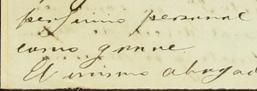 personal
como grave
El mismo abogad